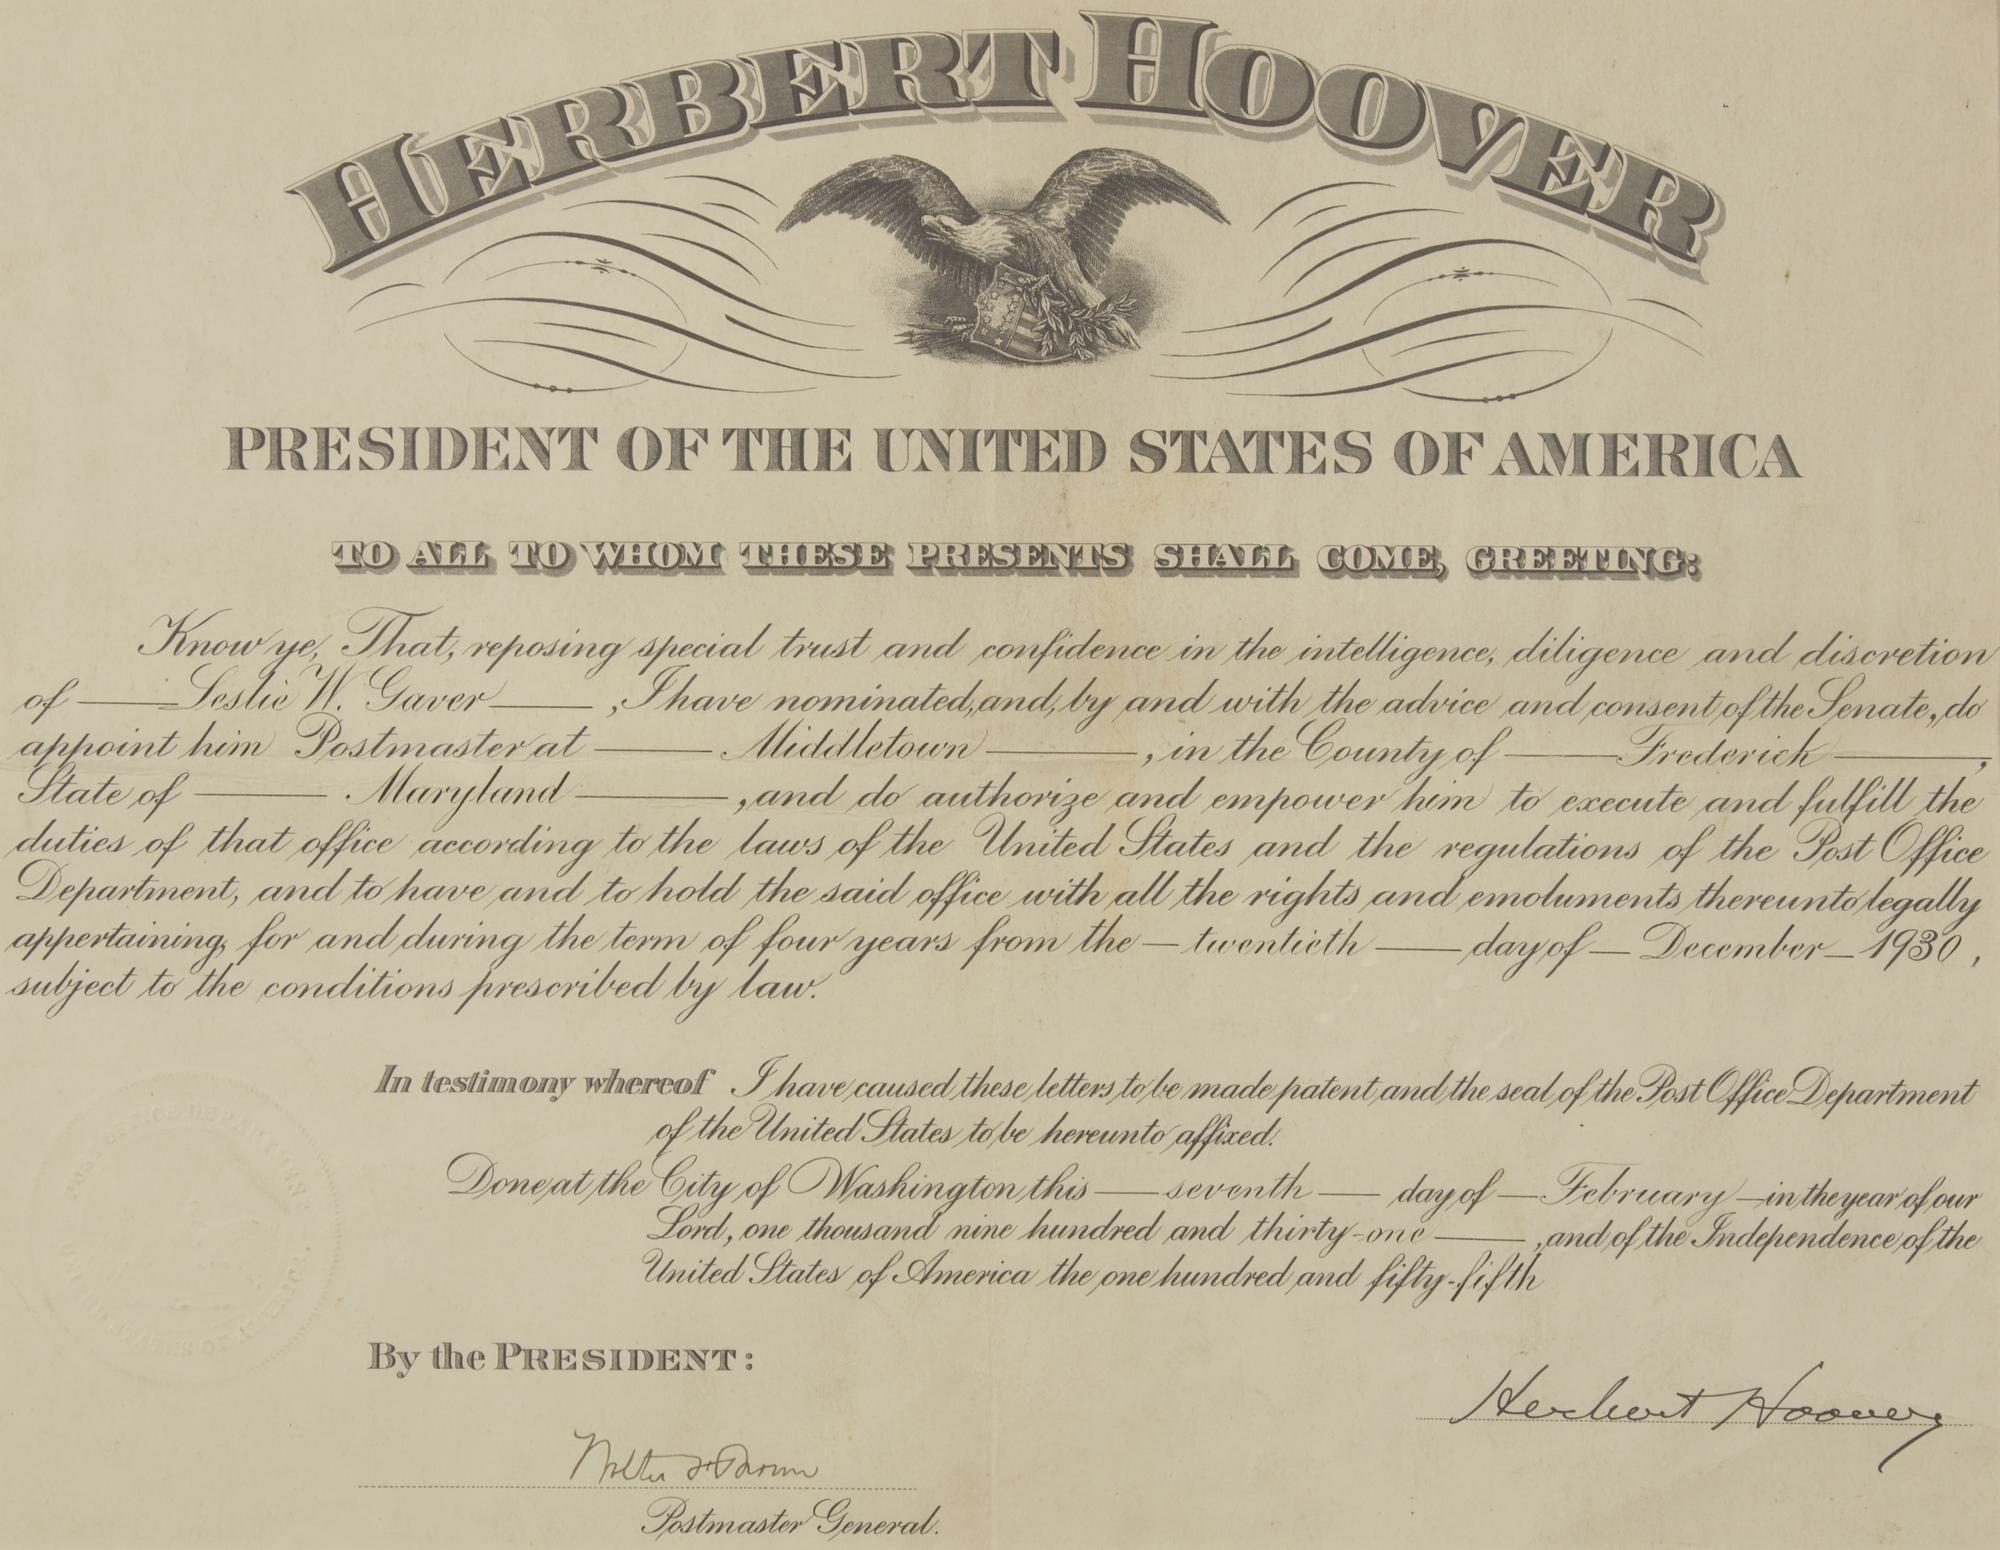 HERBERT HOOVER
PRESIDENT OF THE UNITED STATES OF AMERICA
TO ALL TO WHOM THESE PRESENTS SHALL COME, GREETING:
Know ye, That, reposing special trust and confidence in the intelligence, diligence and discretion
of — Leslie W. Gaver — , I have nominated, and, by and with the advice and consent of the Senate, do
appoint him Postmaster at — Middletown — , in the County of — Frederick — ,
State of — Maryland — , and do authorize and empower him to execute and fulfill the
duties of that office according to the laws of the United States and the regulations of the Post Office
Department, and to have and to hold the said office with all the rights and emoluments thereunto legally
appertaining, for and during the term of four years from the — twentieth — day of — December — 1930 ,
subject to the conditions prescribed by law.
In testimony whereof I have caused these letters to be made patent and the seal of the Post Office Department
of the United States to be hereunto affixed.
Done at the City of Washington this — seventh — day of — February — in the year of our
Lord, one thousand nine hundred and thirty-one — , and of the Independence of the
United States of America the one hundred and fifty-fifth
By the PRESIDENT:
Herbert Hoover
Walter F. Brown
Postmaster General.